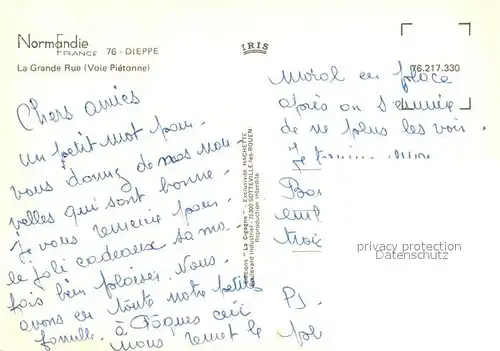 Normandie
FRANCE 76 - DIEPPE
La Grande Rue (Voie Piétonne)
IRIS
76.217.330
Chers amies
un petit mot pour
vous donner de nos nou-
velles qui sont bonne
Je vous remercie pour
le joli cadeaux sa ma
fais bien plaisir. Nous
avons eu toute notre petits
famille à Pâques ceci
nous remet le
moral en place
après on s'ennuie
de ne plus les voir.
Je
Bon
trois
PS.
Editions "La Cigogne" - Exclusivité HACHETTE
Boulevard Industriel - 76300 SOTTEVILLE-lès-ROUEN
Reproduction interdite
privacy protection
Datenschutz